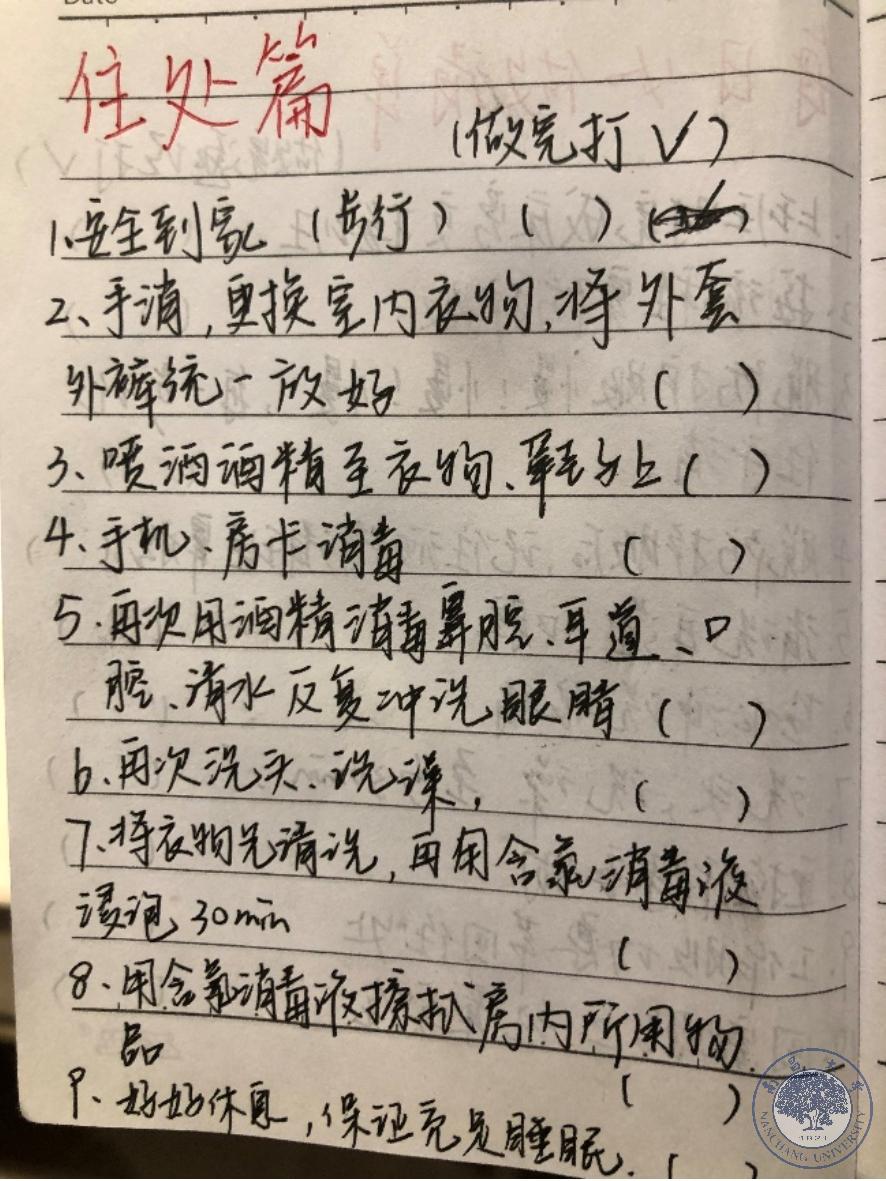 住处篇
(做完打√)
1.安全到家(步行) ( )
2、手消,更换室内衣物,将外套
外裤统一放好 ( )
3、喷洒酒精至衣物、鞋子上( )
4、手机、房卡消毒 ( )
5.再次用酒精消毒鼻腔、耳道、口
腔、清水反复冲洗眼睛 ( )
6.再次洗头、洗澡, ( )
7.将衣物先清洗,再用含氯消毒液
浸泡30min ( )
8.用含氯消毒液擦拭房内所用物
品 ( )
9、好好休息,保证充足睡眠. ( )
NANCHANG UNIVERSITY
1921